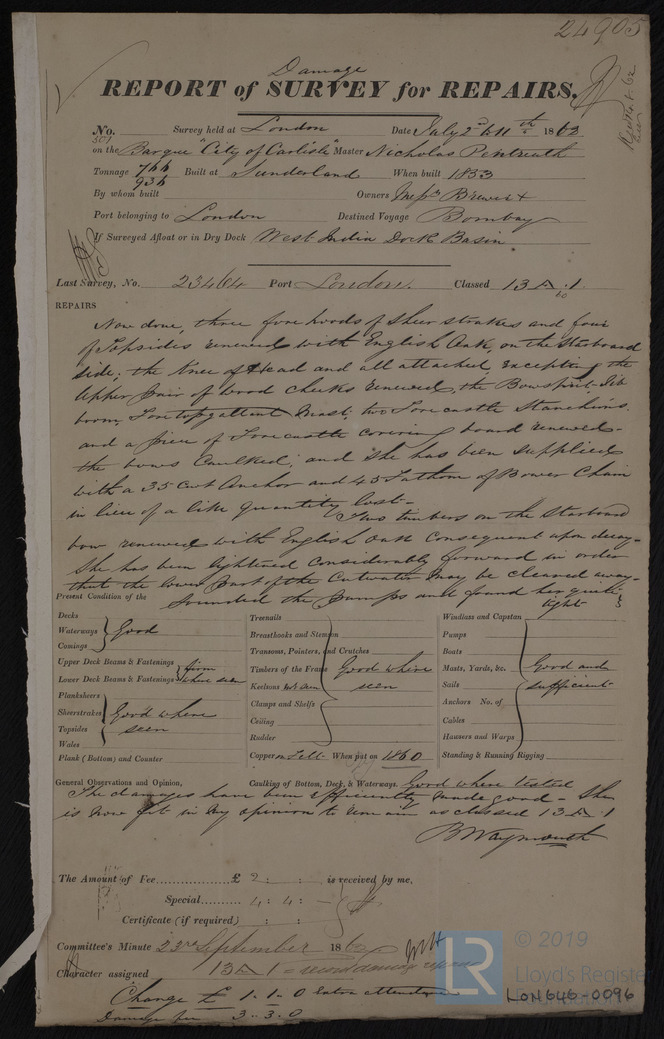 24905
Damage
REPORT of SURVEY for REPAIRS.
No. 301 Survey held at London Date July 2nd & 11th 1862
on the Barque "City of Carlisle" Master Nicholas Pentreath
Tonnage 766 Built at Sunderland When built 1853
936
By whom built Owners Messrs Brewis &
Port belonging to London Destined Voyage Bombay
If Surveyed Afloat or in Dry Dock West India Dock Basin
Last Survey, No. 23464 Port London. Classed 13 A . 1
60
REPAIRS
Now done, three fore hoods of Sheer strakes and four
of Topsides renewed with English Oak, on the Starboard
side; the Knee of Head and all attached, excepting the
Upper pair of wood cheeks renewed, the Bowsprit - Jib
boom, Foretopgallent Mast, two Forecastle Stanchions.
and a piece of Forecastle covering board renewed -
the bows Caulked; and she has been supplied
with a 35 cwt Anchor and 45 Fathom of Bower Chain
in lieu of a like quantity lost -
Two timbers on the Starboard
bow renewed with English Oak Consequent upon decay -
She has been lightened Considerably forward in order
that the lower part of the Cutwater may be cleared away -
Sounded the pumps and found her quite
tight
Present Condition of the
Decks
Waterways Good
Comings
Upper Deck Beams & Fastenings firm
Lower Deck Beams & Fastenings where seen
Planksheers
Sheerstrakes Good where
Topsides seen
Wales
Plank (Bottom) and Counter
Treenails
Breasthooks and Stemson
Transoms, Pointers, and Crutches
Timbers of the Frame Good where
Keelsons seen
Clamps and Shelfs
Ceiling
Rudder
Copper on Felt When put on 1860
Windlass and Capstan
Pumps
Boats
Masts, Yards, &c. Good and
Sails sufficient
Anchors No. of
Cables
Hausers and Warps
Standing & Running Rigging
General Observations and Opinion, Caulking of Bottom, Deck, & Waterways. Good where tested
The damages have been efficiently made good - She
is now fit in my opinion to remain as classed 13 A 1
B Waymouth
The Amount of Fee £ 2 : : is received by me,
Special 4 : 4 : -
Certificate (if required) : :
Committee's Minute 23rd September 1862
Character assigned 13 A 1
Change £ 1 . 1 . 0 extra attendance
Damage fee 3 .. 3 . 0
LR
© 2019
Lloyd's Register
LON646-0096